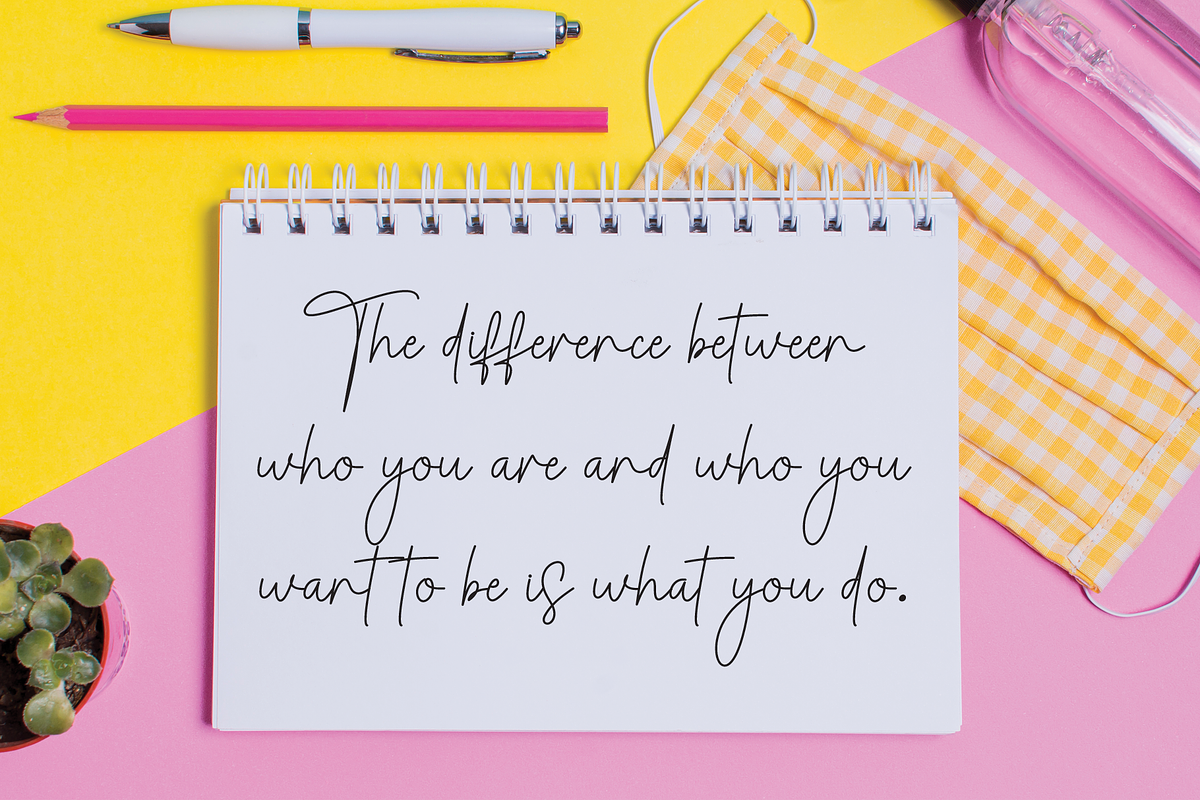 The difference between
who you are and who you
want to be is what you do.